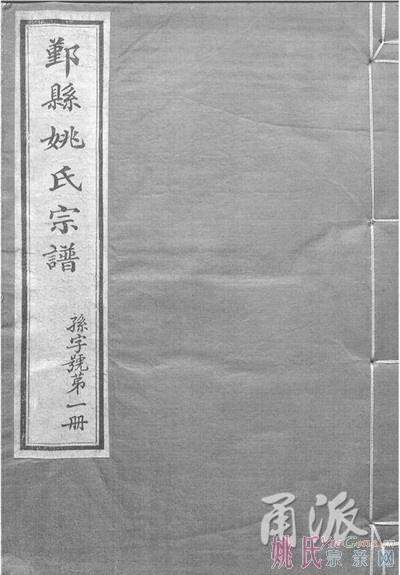 鄞縣姚氏宗譜
孫字號第一冊
甬派
姚氏宗亲网